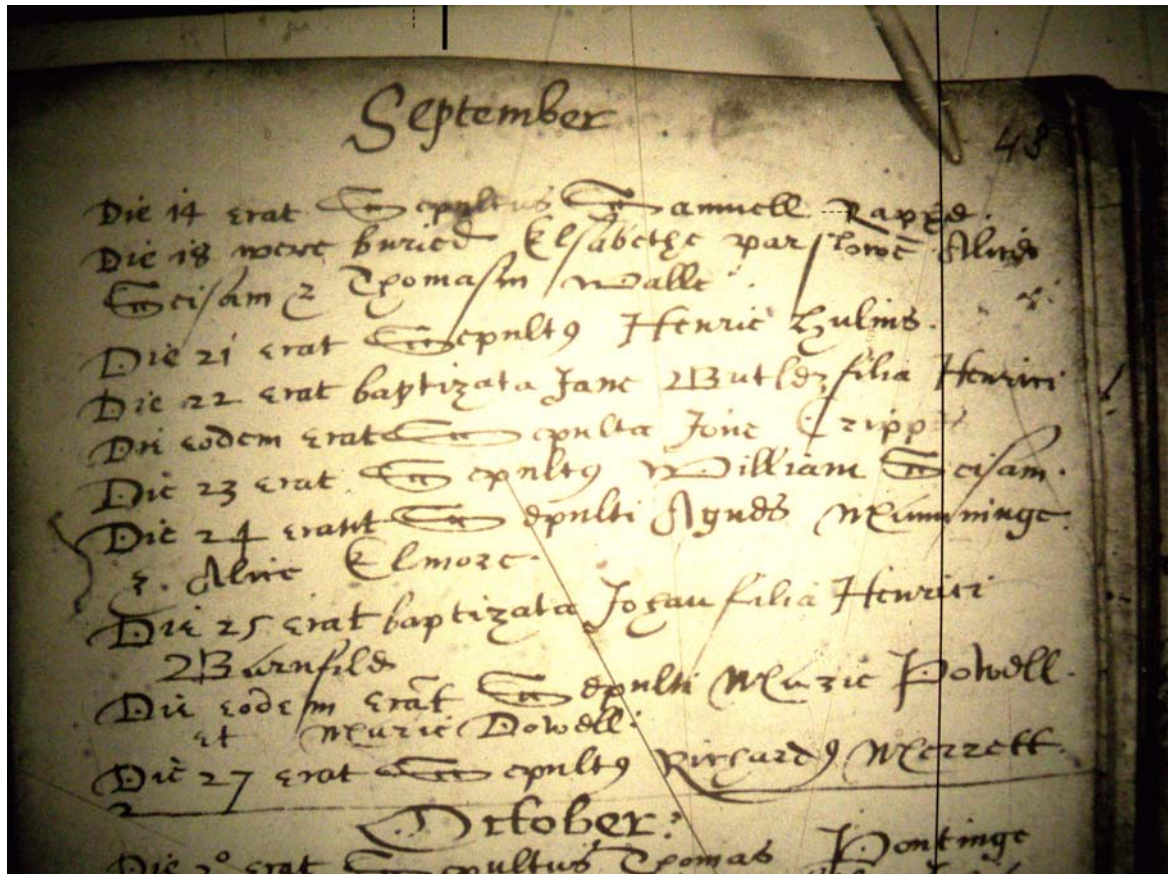 September
48
Die 14 erat Sepultus Samuell Rappe.
Die 18 were buried Elsabethe parslowe Alice
Seisam & Thomasin Walle
Die 21 erat Sepult9 Henrie Hulins.
Die 22 erat baptizata Jane Butler filia Henrici
Die eodem erat Sepulta Jone Cripps
Die 23 erat Sepult9 William Seisam.
Die 24 erant Sepulti Agnes
&. Alice Elmore.
Die 25 erat baptizata Johan filia Henrici
Barnfild
Die eodem erāt Sepulti Marie Powell.
et Marie Dowell.
Die 27 erat Sepult9 Richard9 Merrett.
October:
Die 2° erat Sepultus Thomas Pontinge